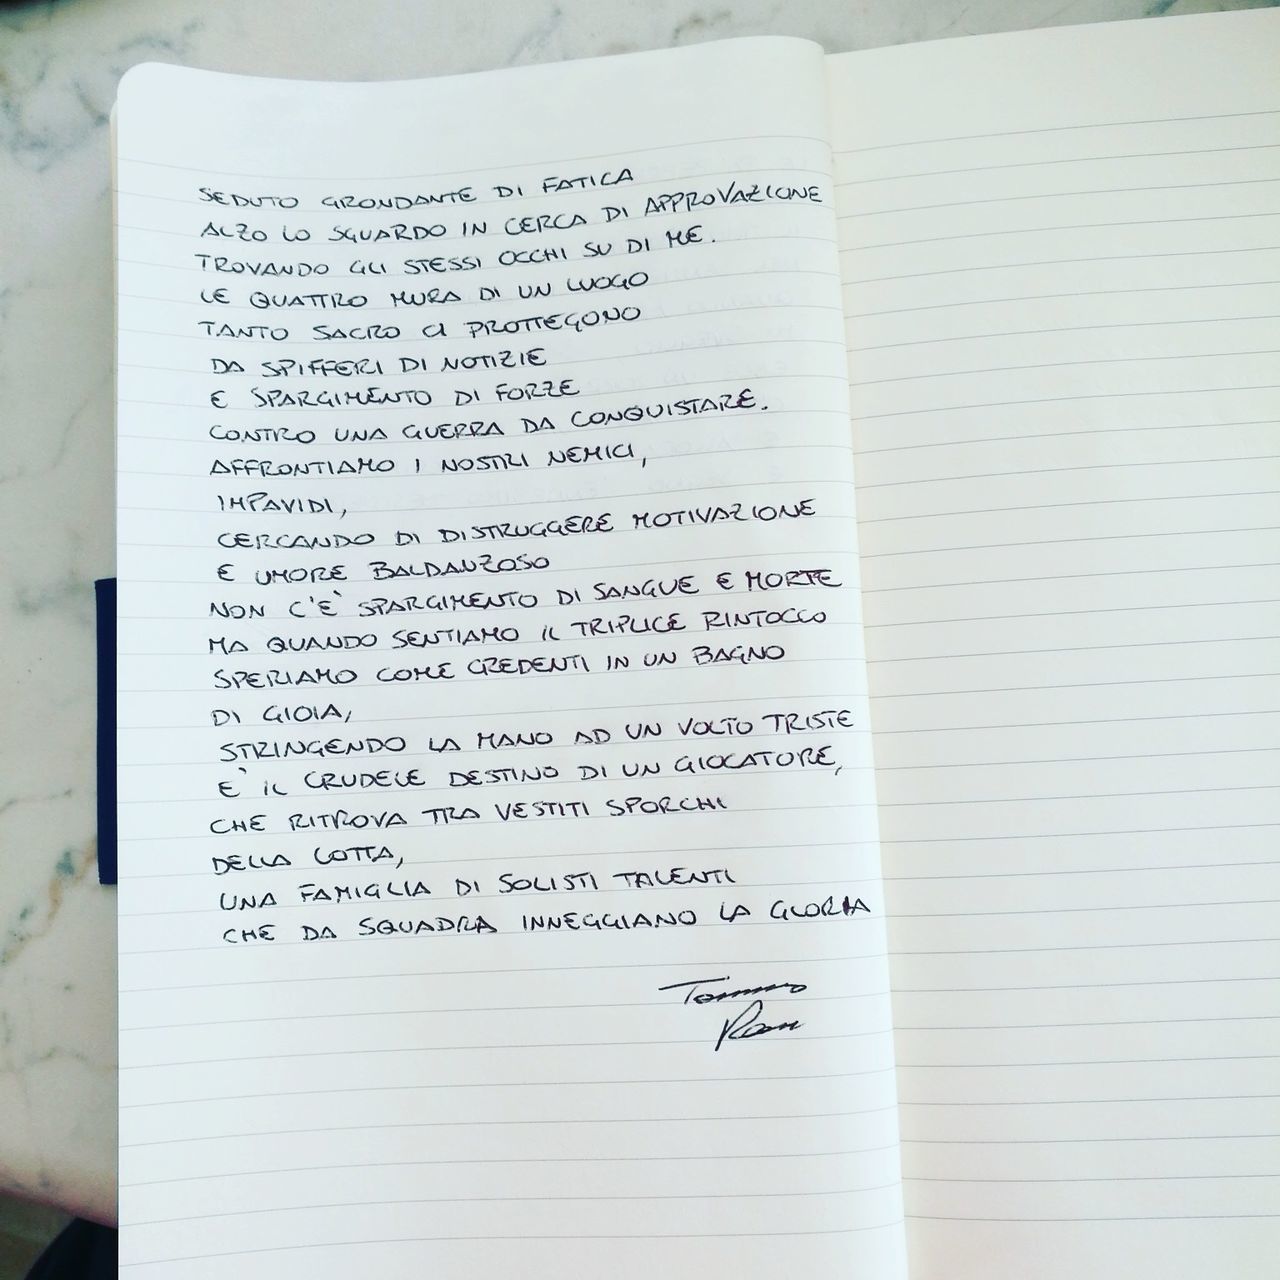 SEDUTO GRONDANTE DI FATICA
ALZO LO SGUARDO IN CERCA DI APPROVAZIONE
TROVANDO GLI STESSI OCCHI SU DI ME.
LE QUATTRO MURA DI UN LUOGO
TANTO SACRO CI PROTTEGONO
DA SPIFFERI DI NOTIZIE
E SPARGIMENTO DI FORZE
CONTRO UNA GUERRA DA CONQUISTARE.
AFFRONTIAMO I NOSTRI NEMICI,
IMPAVIDI,
CERCANDO DI DISTRUGGERE MOTIVAZIONE
E UMORE BALDANZOSO
NON C'È SPARGIMENTO DI SANGUE E MORTE
MA QUANDO SENTIAMO IL TRIPLICE RINTOCCO
SPERIAMO COME CREDENTI IN UN BAGNO
DI GIOIA,
STRINGENDO LA MANO AD UN VOLTO TRISTE
È IL CRUDELE DESTINO DI UN GIOCATORE,
CHE RITROVA TRA VESTITI SPORCHI
DELLA LOTTA,
UNA FAMIGLIA DI SOLISTI TALENTI
CHE DA SQUADRA INNEGGIANO LA GLORIA